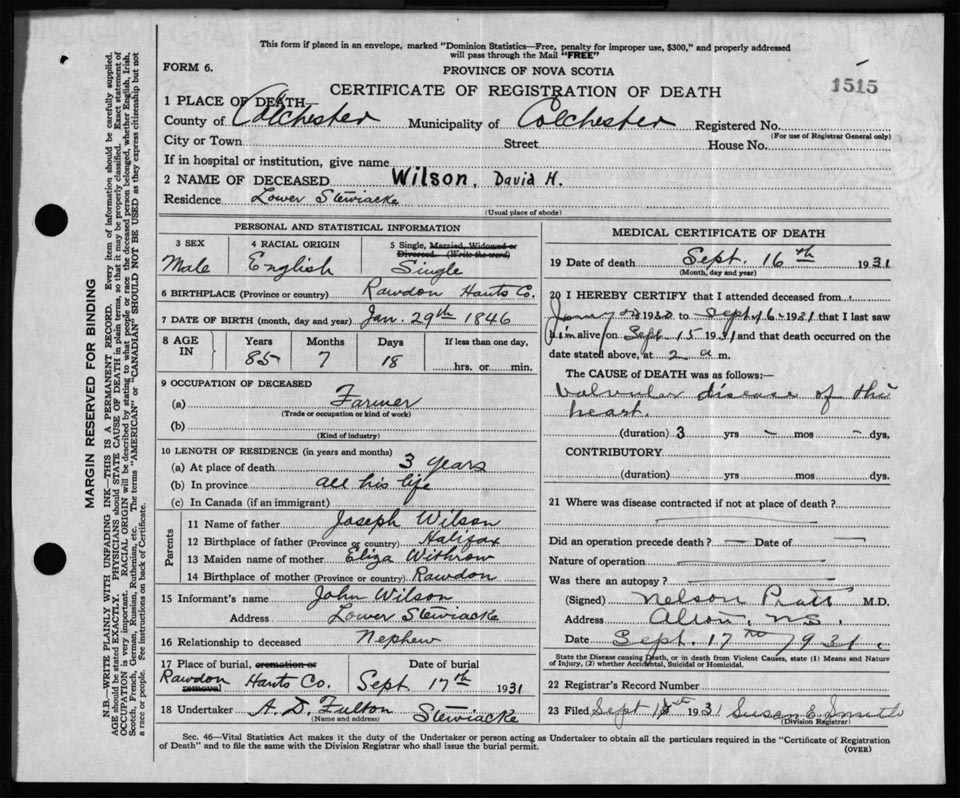 This form if placed in an envelope, marked "Dominion Statistics—Free, penalty for improper use, $300," and properly addressed
will pass through the Mail "FREE"
FORM 6.
PROVINCE OF NOVA SCOTIA
1515
CERTIFICATE OF REGISTRATION OF DEATH
1 PLACE OF DEATH
County of Colchester Municipality of Colchester Registered No.
(For use of Registrar General only)
City or Town Street House No.
If in hospital or institution, give name
2 NAME OF DECEASED Wilson, David H.
Residence Lower Stewiacke
(Usual place of abode)
PERSONAL AND STATISTICAL INFORMATION
3 SEX 4 RACIAL ORIGIN 5 Single, Married, Widowed or
Divorced. (Write the word)
Male English Single
6 BIRTHPLACE (Province or country) Rawdon Hants Co.
7 DATE OF BIRTH (month, day and year) Jan. 29th 1846
8 AGE IN Years Months Days If less than one day,
85 7 18 hrs. or min.
9 OCCUPATION OF DECEASED
(a) Farmer
(Trade or occupation or kind of work)
(b)
(Kind of industry)
10 LENGTH OF RESIDENCE (in years and months)
(a) At place of death 3 years
(b) In province all his life
(c) In Canada (if an immigrant)
Parents
11 Name of father Joseph Wilson
12 Birthplace of father (Province or country) Halifax
13 Maiden name of mother Eliza Withrow
14 Birthplace of mother (Province or country) Rawdon
15 Informant's name John Wilson
Address Lower Stewiacke
16 Relationship to deceased Nephew
17 Place of burial, cremation or removal Date of burial
Rawdon Hants Co. Sept 17th 1931
18 Undertaker A. D. Fulton Stewiacke
(Name and address)
MEDICAL CERTIFICATE OF DEATH
19 Date of death Sept. 16th 1931
(Month, day and year)
20 I HEREBY CERTIFY that I attended deceased from
to Sept 16 1931 that I last saw
him alive on Sept 15 1931 and that death occurred on the
date stated above, at 2 a m.
The CAUSE of DEATH was as follows:—
Valvular disease of the
heart.
(duration) 3 yrs – mos – dys.
CONTRIBUTORY
(duration) yrs mos dys.
21 Where was disease contracted if not at place of death?
Did an operation precede death? — Date of —
Nature of operation
Was there an autopsy?
(Signed) Nelson Pratt M.D.
Address Alton, NS.
Date Sept. 17th 1931.
State the Disease causing Death, or in death from Violent Causes, state (1) Means and Nature
of Injury, (2) whether Accidental, Suicidal or Homicidal.
22 Registrar's Record Number
23 Filed Sept 1931 Susan E. Smith
(Division Registrar)
Sec. 46—Vital Statistics Act makes it the duty of the Undertaker or person acting as Undertaker to obtain all the particulars required in the "Certificate of Registration
of Death" and to file the same with the Division Registrar who shall issue the burial permit.
(OVER)
MARGIN RESERVED FOR BINDING
N.B.—WRITE PLAINLY WITH UNFADING INK—THIS IS A PERMANENT RECORD. Every item of information should be carefully supplied.
AGE should be stated EXACTLY. PHYSICIANS should STATE CAUSE OF DEATH in plain terms, so that it may be properly classified. Exact statement of
OCCUPATION is very important. RACIAL ORIGIN will be described by stating to what people or race the deceased person belonged, whether English, Irish,
Scotch, French, German, Russian, Ruthenian, etc. The terms "AMERICAN" or "CANADIAN" SHOULD NOT BE USED as they express citizenship but not
a race or people. See instructions on back of Certificate.